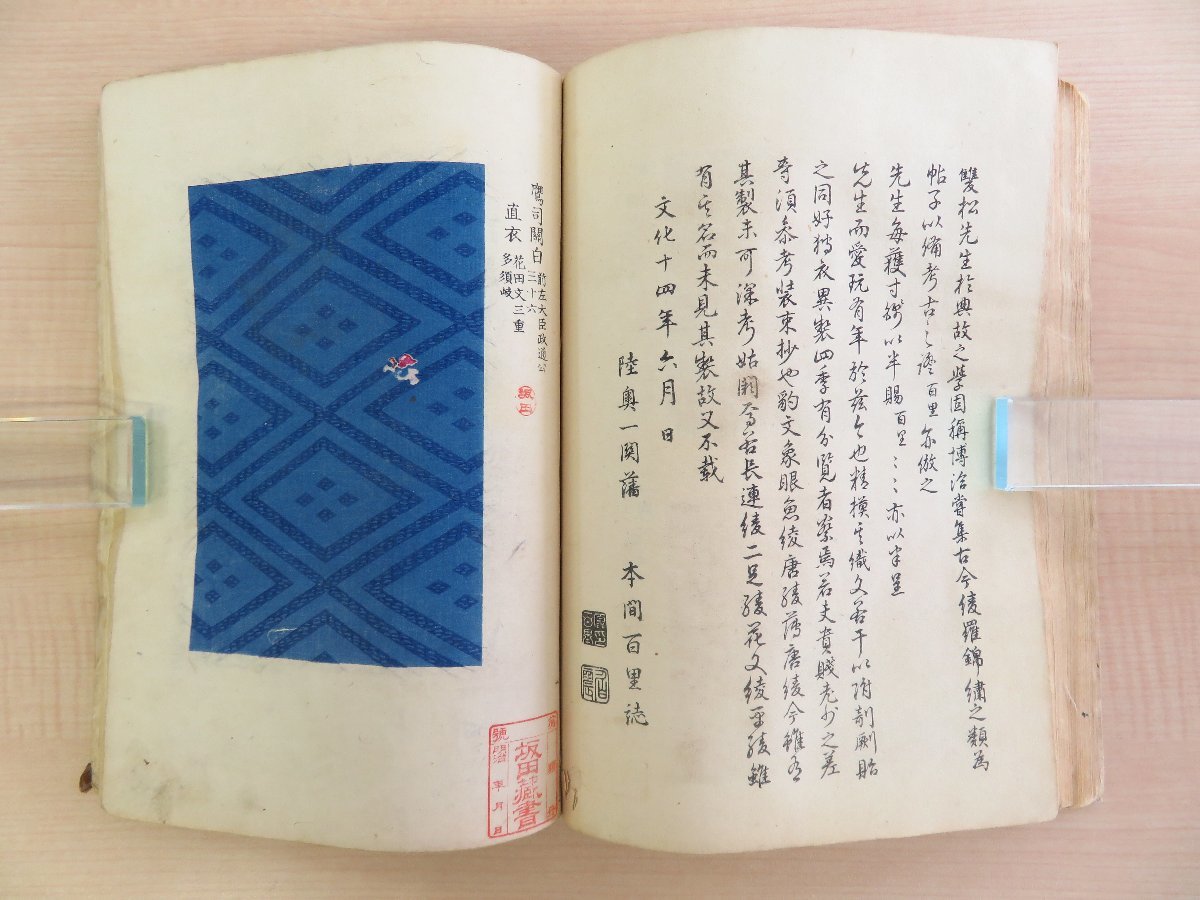 雙松先生於典故之學固稱博洽嘗集古今綾羅錦繡之類為
帖子以備考古之證百里亦倣之
先生每獲寸錦以半賜百里〻〻亦以半呈
先生而愛玩有年於茲今也精摸其織文若干以附剞劂貽
之同好猶衣異製四季有分覽者察焉若夫貴賤老少之差
等須參考裝束抄也豹文象眼魚綾唐綾薄唐綾今雖有
其製未可深考姑闕焉若長連綾二足綾花文綾平綾雖
有其名而未見其製故又不載
文化十四年六月日
陸奧一關藩 本間百里誌
鷹司關白 前左大臣政通公 三十六
直衣 花田文三重多須岐
坂田
坂田藏書
號 明治 年 月 日